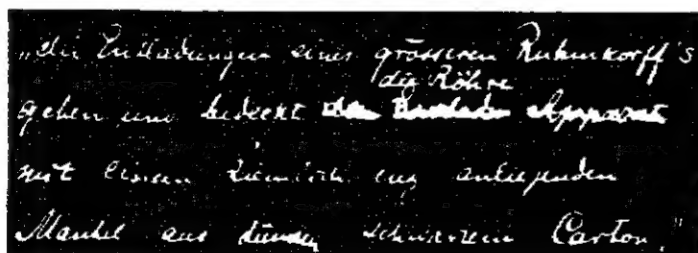 „die Entladungen eines grösseren Ruhmkorff's
die Röhre
gehen und bedeckt den Apparat
mit einem ziemlich eng anliegenden
Mantel aus dünnem schwarzem Carton."